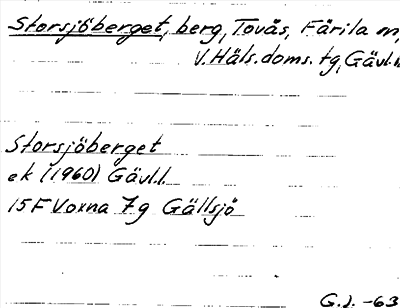 Storsjöberget, berg, Tovås, Färila m,
V. Häls. doms. tg, Gävl.l.
Storsjöberget
ek (1960) Gävl.l.
15F Voxna 7g Gällsjö
G.J. -63